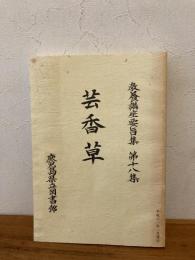 教養講座要旨集 第十八集
芸香草
鹿児島県立図書館